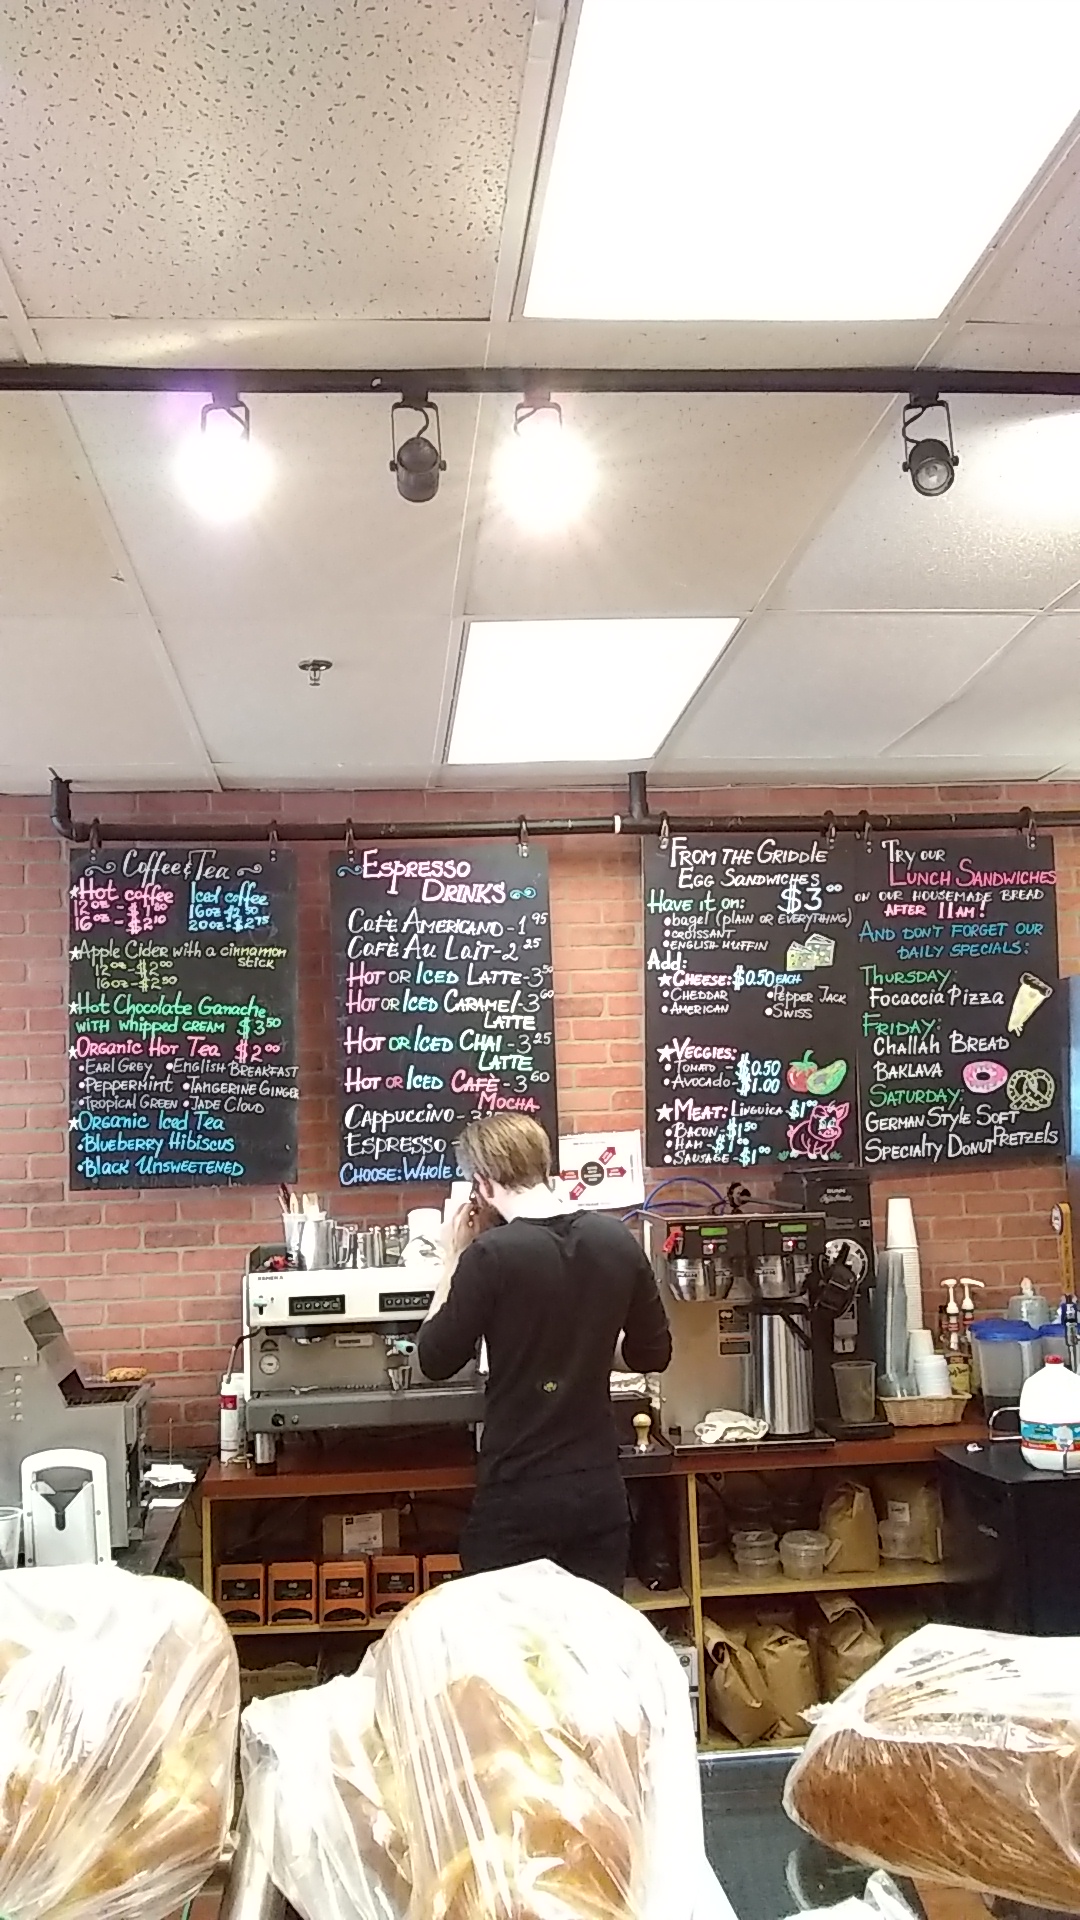 Coffee & Tea
★Hot coffee
12oz - $1.80
16oz - $2.10
Iced coffee
16oz-$2.50
20oz-$2.75
★Apple Cider with a cinnamon
stick
12oz - $2.00
16oz - $2.50
★Hot Chocolate Ganache
with whipped cream $3.50
★Organic Hot Tea $2.00
•Earl Grey •English Breakfast
•Peppermint •Tangerine Ginger
•Tropical Green •Jade Cloud
★Organic Iced Tea
•Blueberry Hibiscus
•Black Unsweetened
Espresso
Drinks
Cafè Americano - 1.95
Cafè Au Lait - 2.25
Hot or Iced Latte - 3.50
Hot or Iced Caramel - 3.60
Latte
Hot or Iced Chai - 3.25
Latte
Hot or Iced Cafè - 3.60
Mocha
Cappuccino -
Espresso -
Choose: Whole
From the Griddle
Egg Sandwiches
$3.00
Have it on:
•bagel (plain or everything)
•croissant
•English muffin
Add:
★Cheese: $0.50 each
•Cheddar •Pepper Jack
•American •Swiss
★Veggies:
•Tomato - $0.50
•Avocado - $1.00
★Meat: Linguica $1.00
•Bacon - $1.50
•Ham - $1.00
•Sausage - $1.00
Try our
Lunch Sandwiches
on our housemade bread
after 11am!
And don't forget our
daily specials:
Thursday:
Focaccia Pizza
Friday:
Challah Bread
Baklava
Saturday:
German Style Soft
Pretzels
Specialty Donut
BUNN